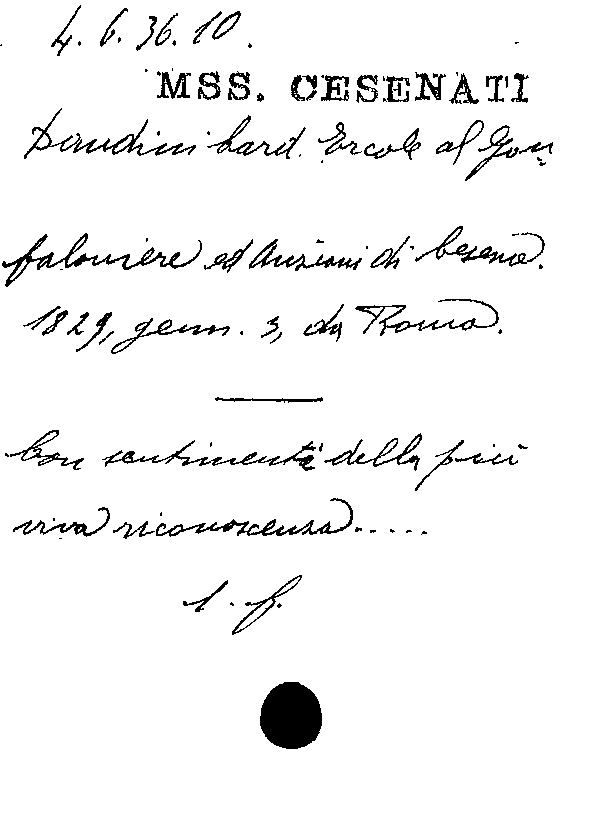 4. 6. 36. 10.
MSS. CESENATI
Dandini Card. Ercole al Gon-
faloniere ed Anziani di Cesena.
1829, genn. 3, da Roma.
Con sentimenti della più
viva riconoscenza.....
1. f.